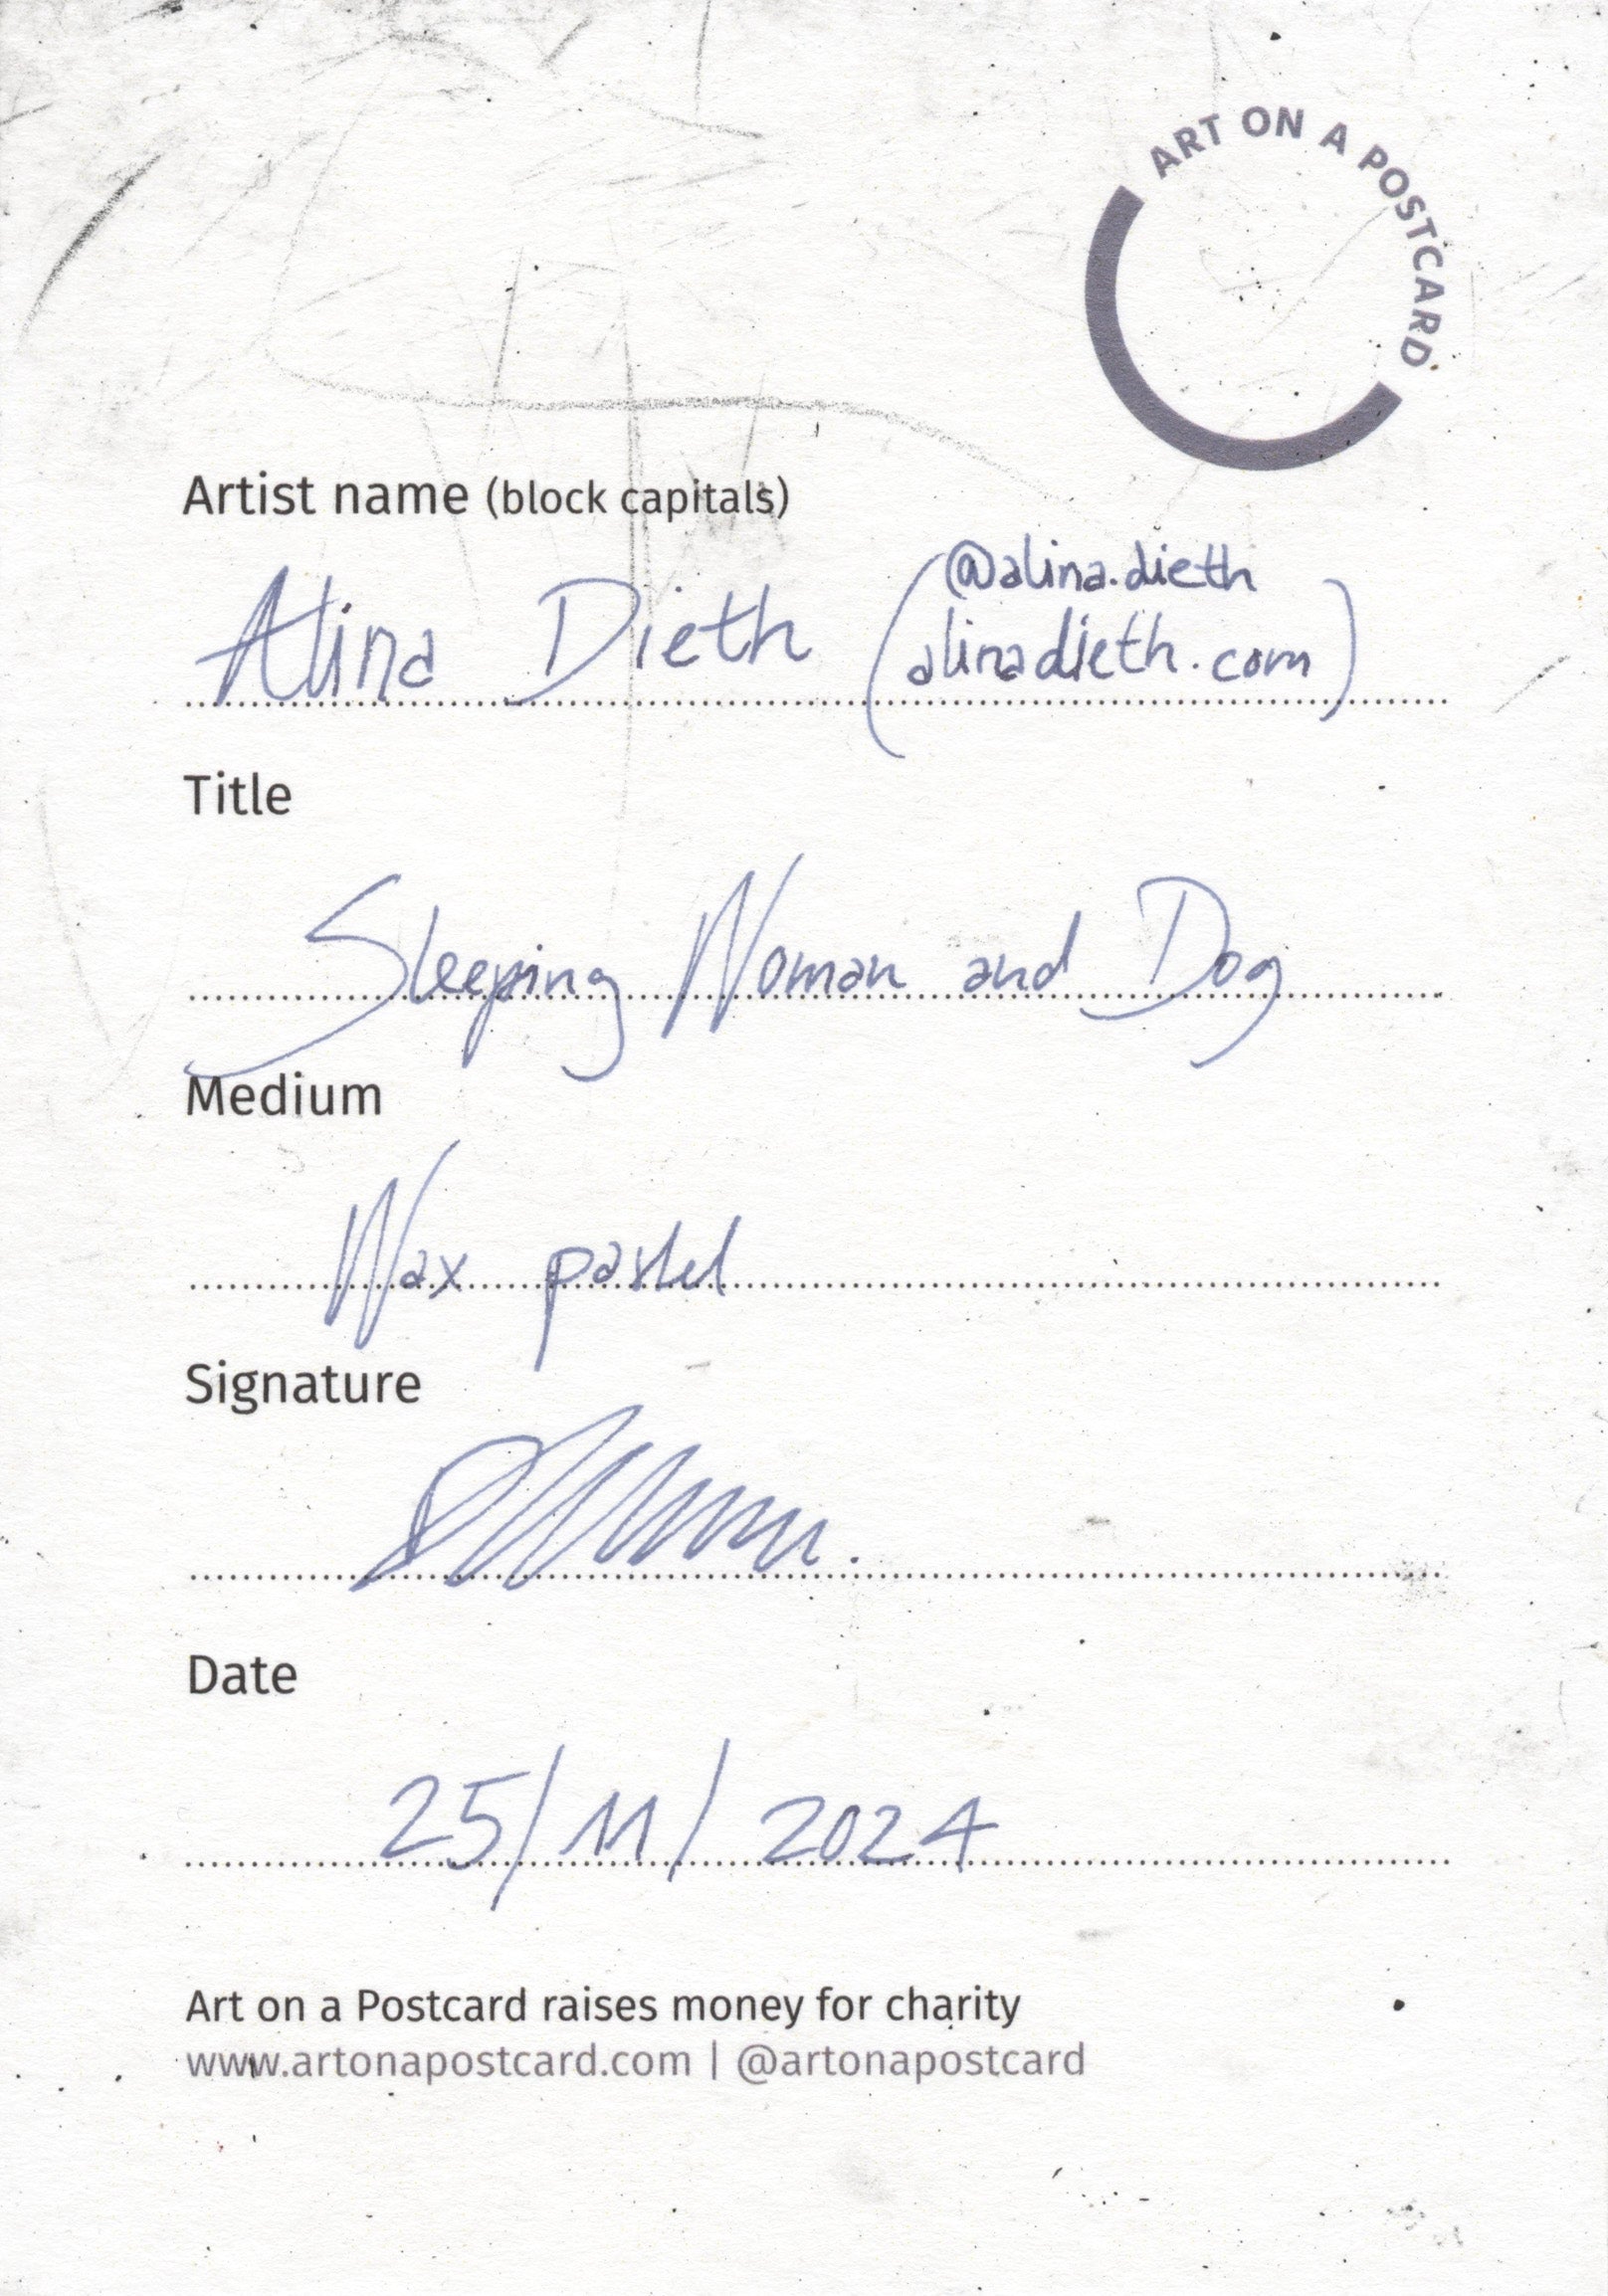 ART ON A POSTCARD
Artist name (block capitals)
@alina.dieth
Alina Dieth (alinadieth.com)
Title
Sleeping Woman and Dog
Medium
Wax pastel
Signature
Date
25/11/2024
Art on a Postcard raises money for charity
www.artonapostcard.com | @artonapostcard